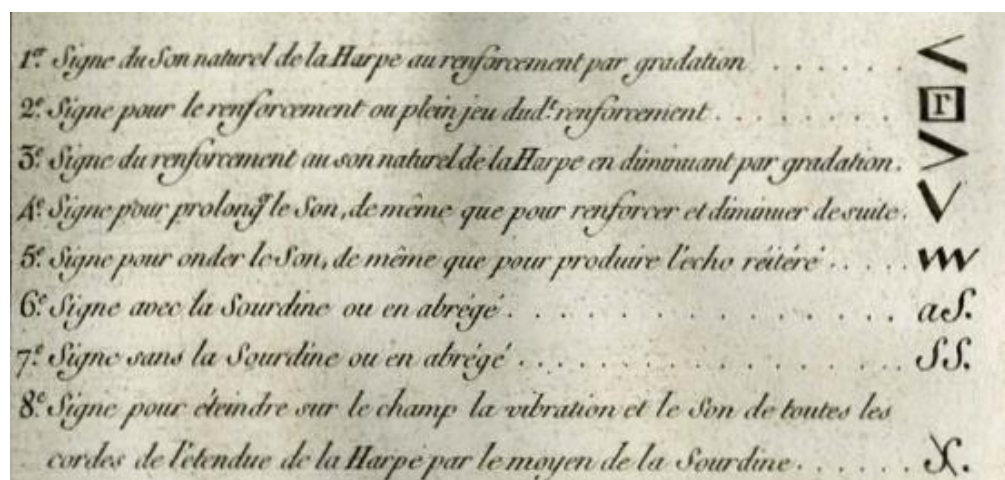 1er. Signe du Son naturel de la Harpe au renforcement par gradation . . . . . . <
2e. Signe pour le renforcement ou plein jeu dud.t renforcement . . . . . . . . r
3e. Signe du renforcement au son naturel de la Harpe en diminuant par gradation. >
4e. Signe pour prolongr le Son, de même que pour renforcer et diminuer de suite. V
5e. Signe pour onder le Son, de même que pour produire l'echo réitéré . . . . . vvv
6e. Signe avec la Sourdine ou en abrégé . . . . . . . . . . . . . . . aS.
7e. Signe sans la Sourdine ou en abrégé . . . . . . . . . . . . . . . SS.
8e. Signe pour éteindre sur le champ la vibration et le Son de toutes les
cordes de l'étendue de la Harpe par le moyen de la Sourdine . . . . . .